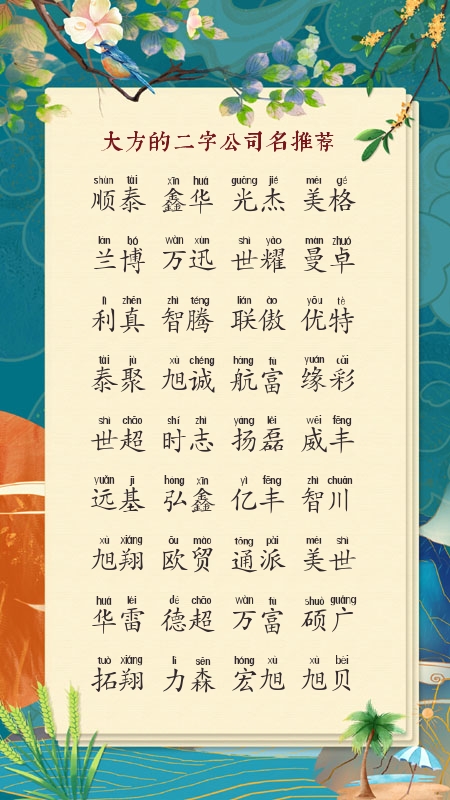 大方的二字公司名推荐
shùn tài xīn huá guāng jié měi gé
顺泰 鑫华 光杰 美格
lán bó wàn xùn shì yào màn zhuó
兰博 万迅 世耀 曼卓
lì zhēn zhì téng lián ào yōu tè
利真 智腾 联傲 优特
tài jù xù chéng háng fù yuán cǎi
泰聚 旭诚 航富 缘彩
shì chāo shí zhì yáng lěi wēi fēng
世超 时志 扬磊 威丰
yuǎn jī hóng xīn yì fēng zhì chuān
远基 弘鑫 亿丰 智川
xù xiáng ōu mào tōng pài měi shì
旭翔 欧贸 通派 美世
huá léi dé chāo wàn fù shuò guǎng
华雷 德超 万富 硕广
tuò xiáng lì sēn hóng xù xù bèi
拓翔 力森 宏旭 旭贝